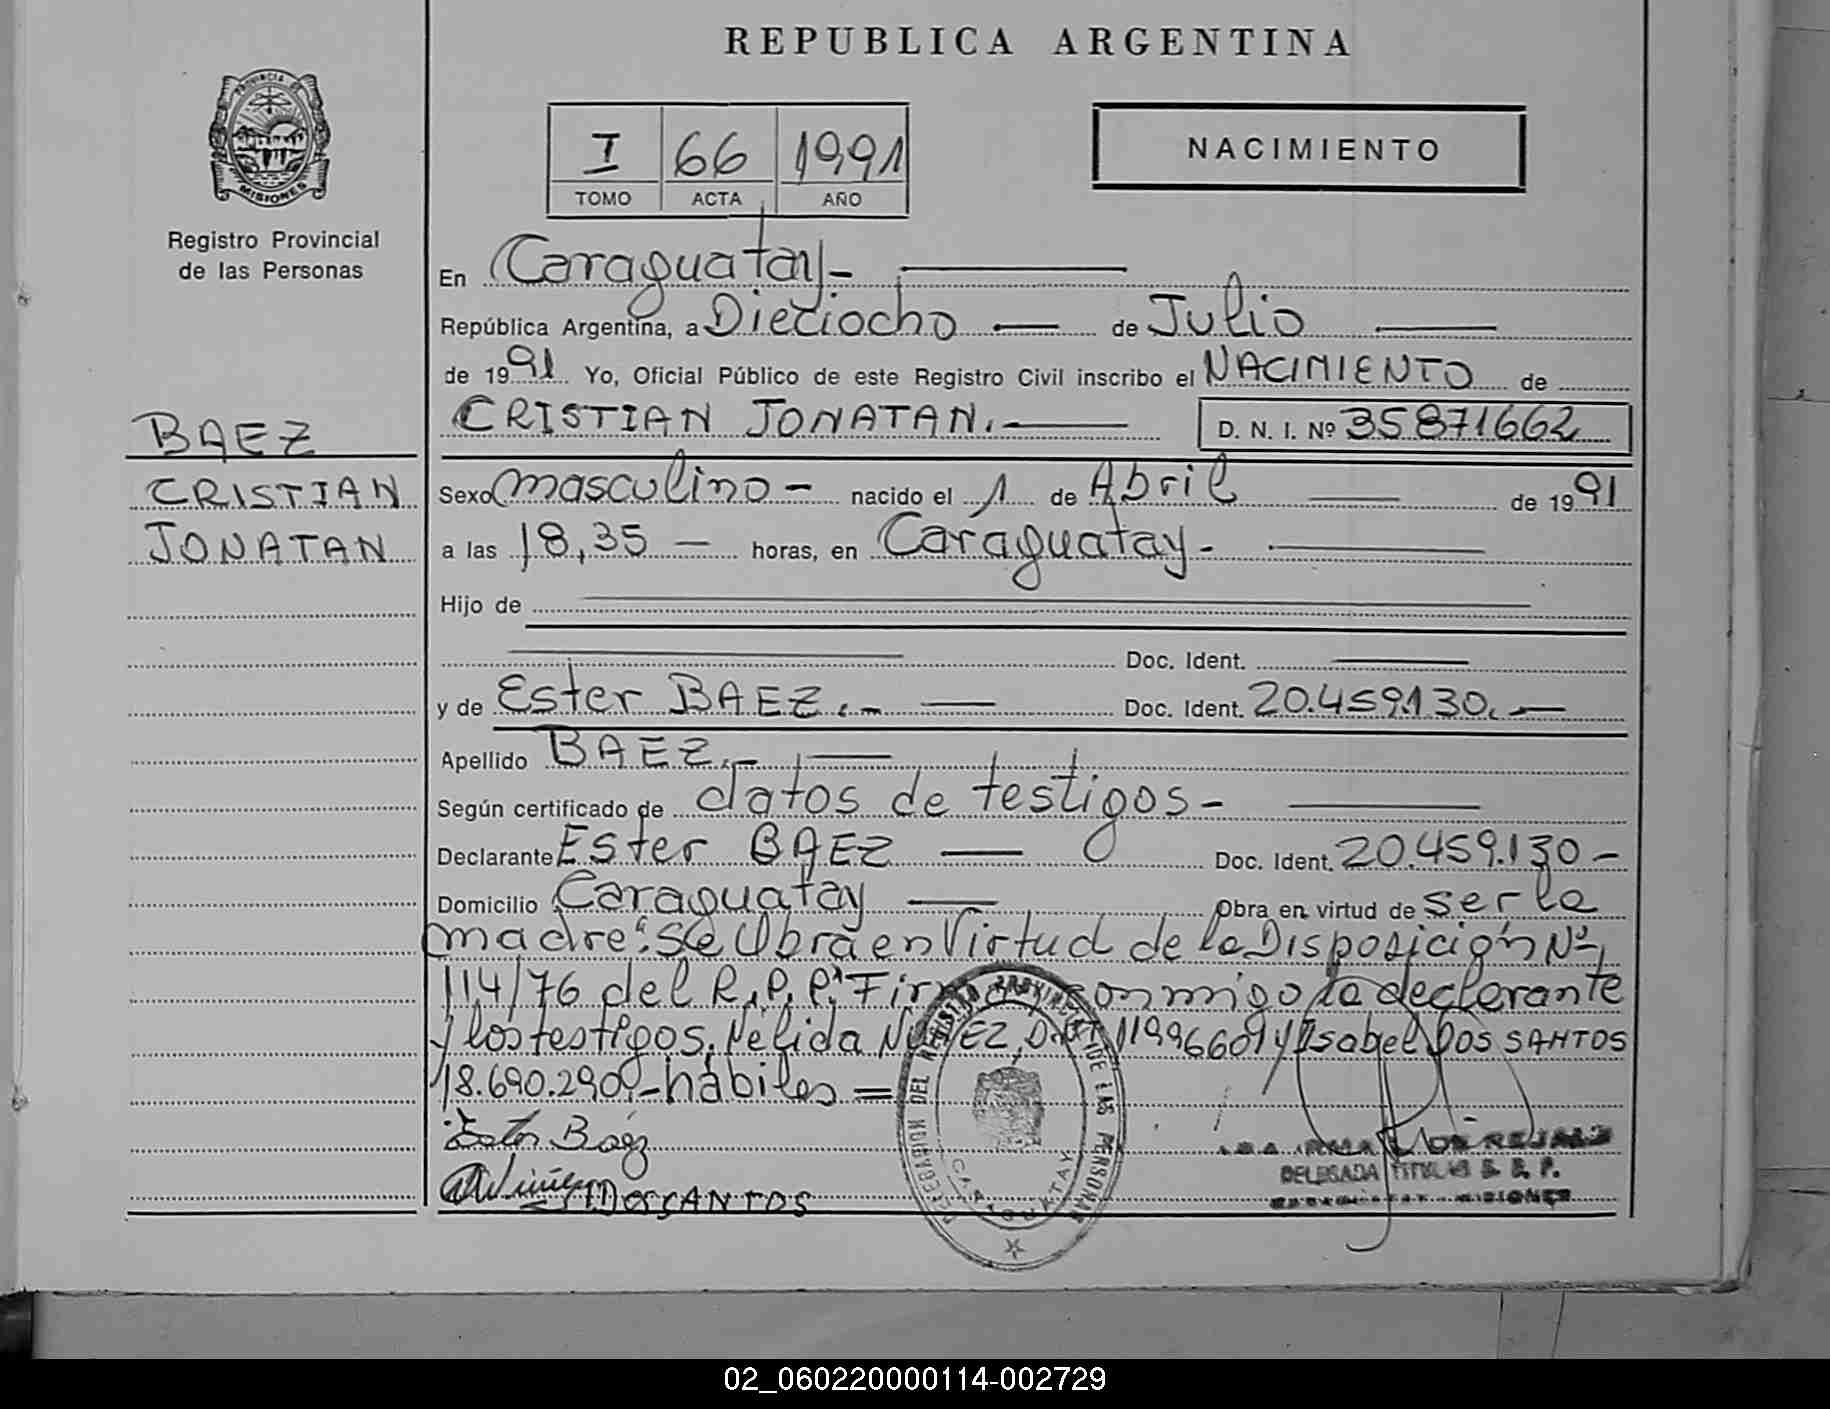 REPUBLICA ARGENTINA
PROVINCIA DE
MISIONES
Registro Provincial
de las Personas
I 66 1991
TOMO ACTA AÑO
NACIMIENTO
En Caraguatay-
República Argentina, a Dieciocho — de Julio
de 1991 Yo, Oficial Público de este Registro Civil inscribo el NACIMIENTO de
CRISTIAN JONATAN.- D. N. I. Nº 35871662
BAEZ
CRISTIAN
JONATAN
Sexo masculino - nacido el 1 de Abril de 1991
a las 18,35 — horas, en Caraguatay-
Hijo de
Doc. Ident.
y de Ester BAEZ.- Doc. Ident. 20.459.130.-
Apellido BAEZ.-
Según certificado de datos de testigos-
Declarante Ester BAEZ — Doc. Ident. 20.459.130-
Domicilio Caraguatay — Obra en virtud de ser la
madre "Se Obra en Virtud de la Disposición Nº
114/76 del R.P.P." Firma conmigo la declarante
y los testigos. Nélida 11996609 y Isabel DOS SANTOS
18.690.290.- hábiles =
Ester Baéz
DOS SANTOS
DELEGACION DEL REGISTRO PROVINCIAL DE LAS PERSONAS
CARAGUATAY
DELEGADA TITULAR
MISIONES
02_060220000114-002729